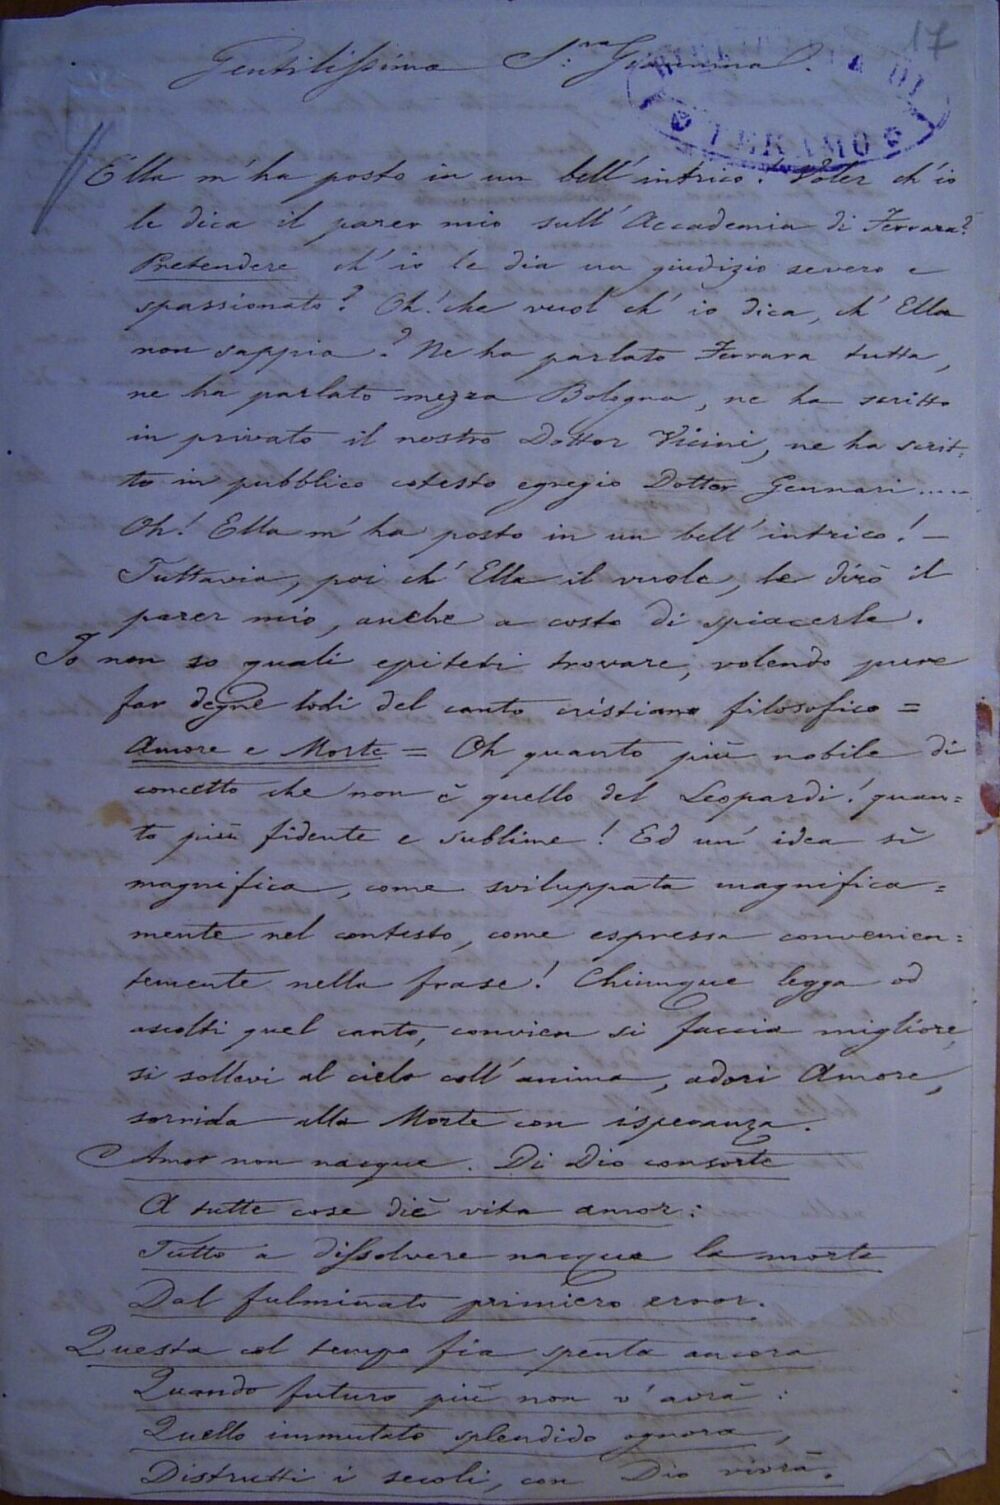 17
Gentilissima S.ra Giannina.
BIBLIOTECA DI
TERAMO
Ella m'ha posto in un bell'intrico! Voler ch'io
le dica il parer mio sull'Accademia di Ferrara?
Pretendere ch'io le dia un giudizio severo e
spassionato? Oh! che vuol ch'io dica, ch'Ella
non sappia? Ne ha parlato Ferrara tutta,
ne ha parlato mezza Bologna, ne ha scritto
in privato il nostro Dottor Vicini, ne ha scrit-
to in pubblico cotesto egregio Dottor Gennari.....
Oh! Ella m'ha posto in un bell'intrico! —
Tuttavia, poi ch'Ella il vuole, le dirò il
parer mio, anche a costo di spiacerle.
Io non so quali epiteti trovare, volendo pure
far degne lodi del canto cristiano filosofico =
Amore e Morte = Oh quanto più nobile di
concetto che non è quello del Leopardi! quan=
to più fidente e sublime! Ed un'idea sì
magnifica, come sviluppata magnifica=
mente nel contesto, come espressa convenien=
temente nella frase! Chiunque legga od
ascolti quel canto, convien si faccia migliore,
si sollevi al cielo coll'anima, adori Amore,
sorrida alla Morte con isperanza.
Amor non nacque. Di Dio consorte
A tutte cose diè vita amor:
Tutto a dissolvere nacque la morte
Dal fulminato primiero error.
Questa col tempo fia spenta ancora
Quando futuro più non v'avrà:
Quello immutato splendido ognora,
Distrutti i secoli, con Dio vivrà.